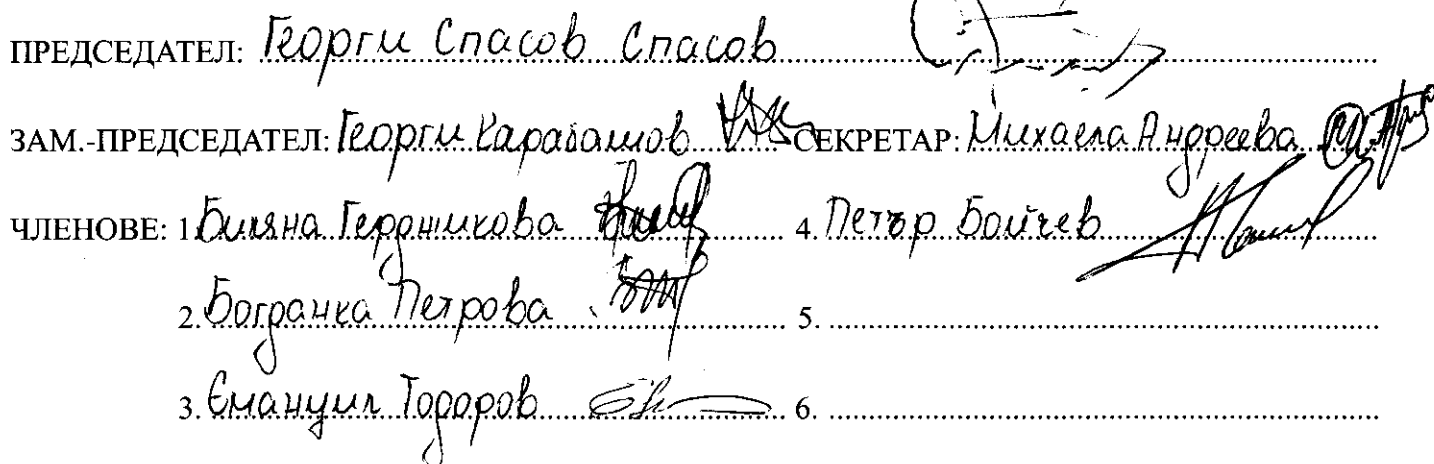 ПРЕДСЕДАТЕЛ: Георги Спасов Спасов
ЗАМ.-ПРЕДСЕДАТЕЛ: Георги Карабашов СЕКРЕТАР: Михаела Андреева
ЧЛЕНОВЕ: 1. Биляна Герджикова 4. Петър Бойчев
2. Богданка Петрова 5.
3. Емануил Тодоров 6.